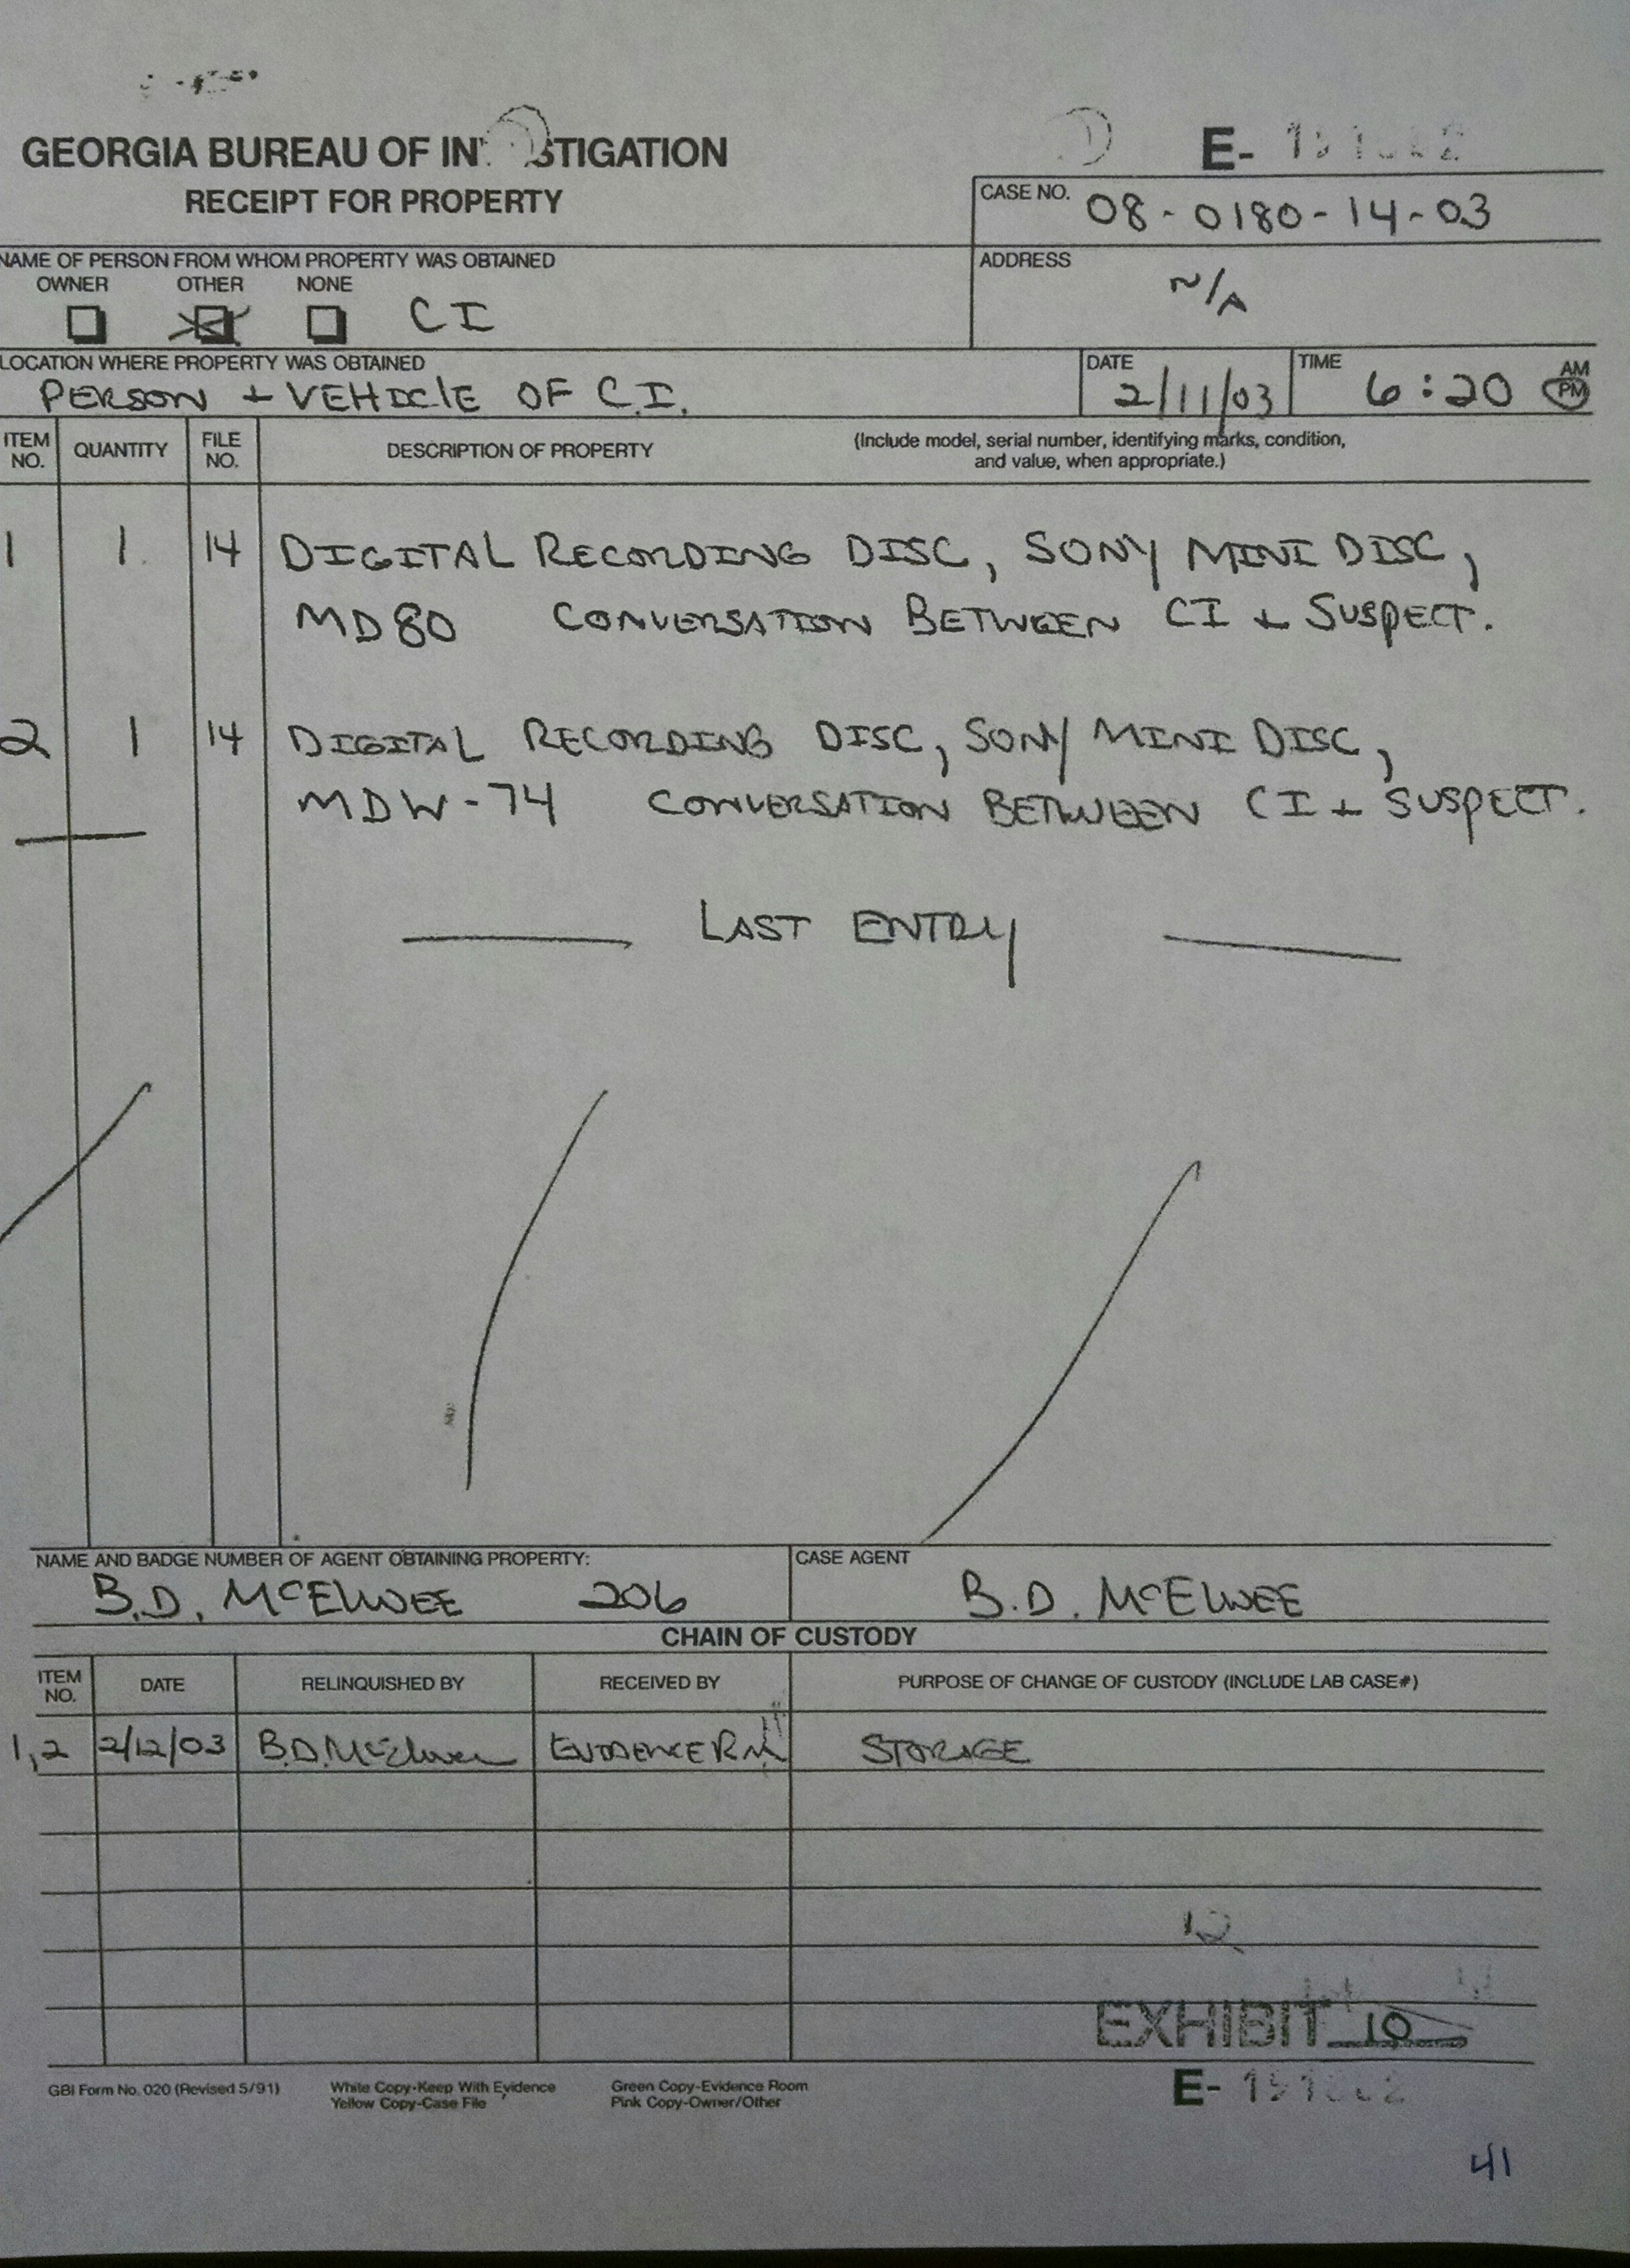 GEORGIA BUREAU OF IN STIGATION
RECEIPT FOR PROPERTY
E-
CASE NO. 08-0180-14-03
NAME OF PERSON FROM WHOM PROPERTY WAS OBTAINED
OWNER OTHER NONE CI
ADDRESS N/A
LOCATION WHERE PROPERTY WAS OBTAINED
PERSON + VEHICLE OF C.I.
DATE 2/11/03
TIME 6:20 AM PM
ITEM NO. QUANTITY FILE NO. DESCRIPTION OF PROPERTY (Include model, serial number, identifying marks, condition, and value, when appropriate.)
1 1 14 DIGITAL RECORDING DISC, SONY MINI DISC,
MD80 CONVERSATION BETWEEN CI + SUSPECT.
2 1 14 DIGITAL RECORDING DISC, SONY MINI DISC,
MDW-74 CONVERSATION BETWEEN CI + SUSPECT.
LAST ENTRY
NAME AND BADGE NUMBER OF AGENT OBTAINING PROPERTY:
B.D. McELWEE 206
CASE AGENT
B.D. McELWEE
CHAIN OF CUSTODY
ITEM NO. DATE RELINQUISHED BY RECEIVED BY PURPOSE OF CHANGE OF CUSTODY (INCLUDE LAB CASE#)
1,2 2/12/03 B.D. McElwee EVIDENCE RM STORAGE
EXHIBIT 10
GBI Form No. 020 (Revised 5/91) White Copy-Keep With Evidence Green Copy-Evidence Room
Yellow Copy-Case File Pink Copy-Owner/Other
E-
41